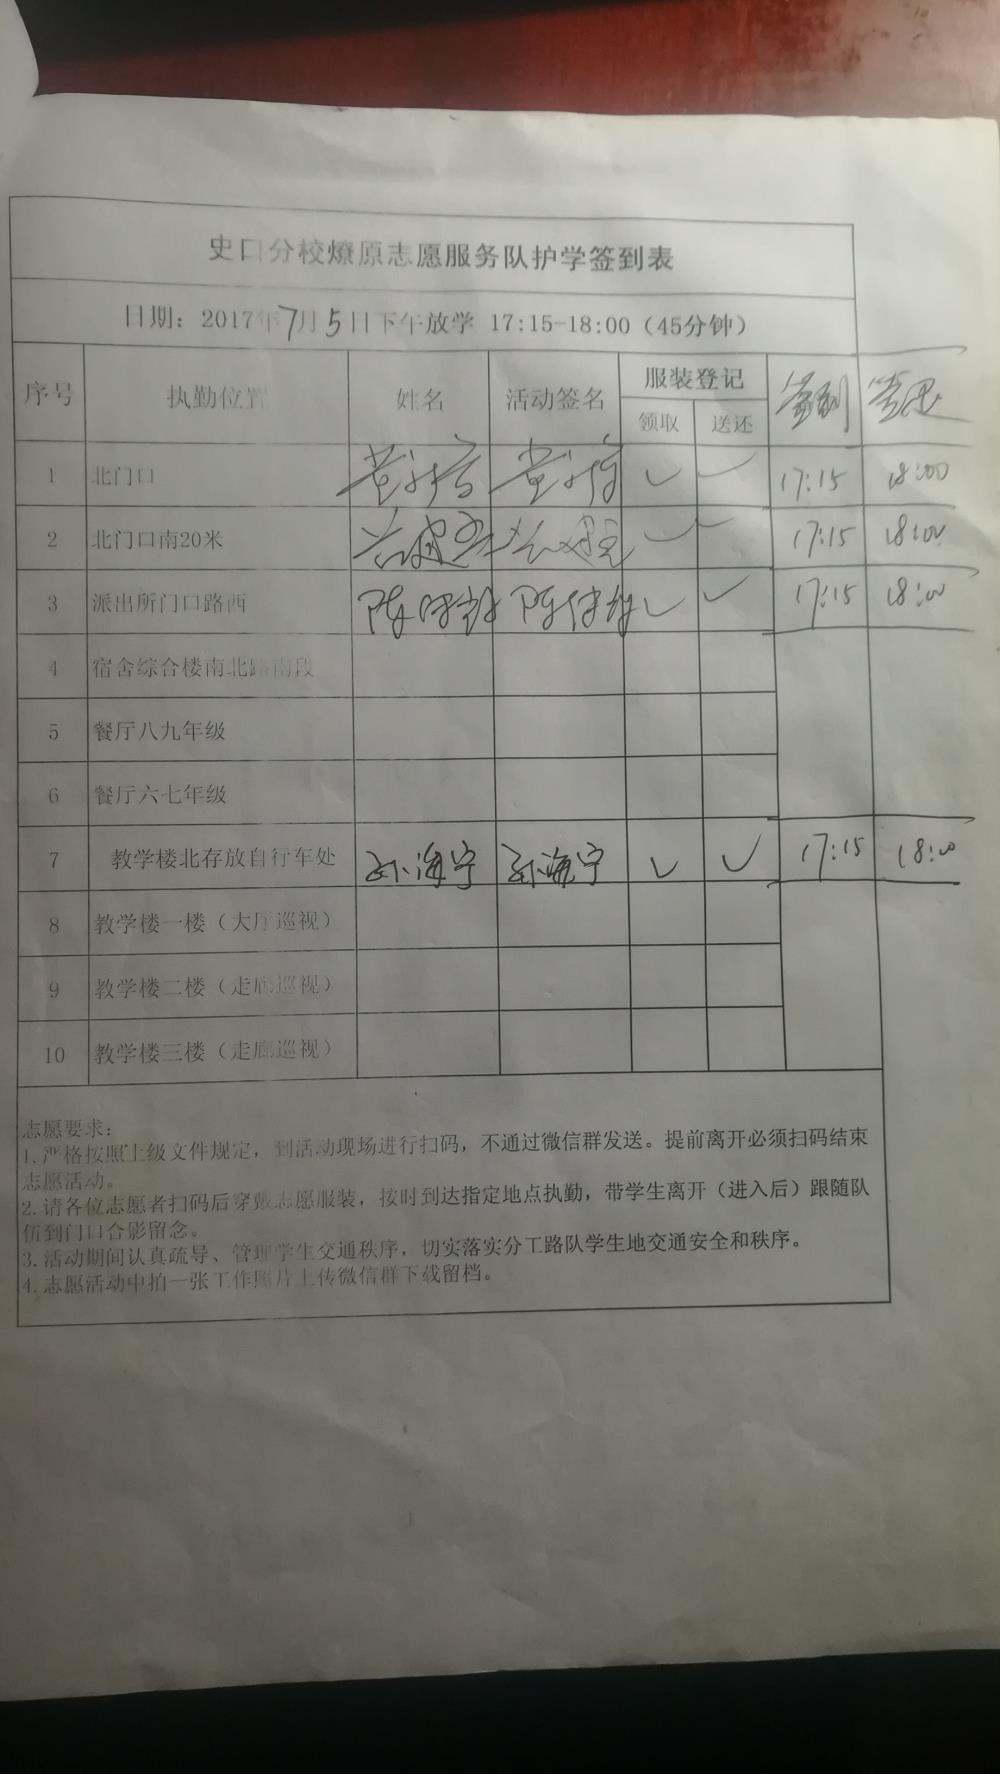 史口分校燎原志愿服务队护学签到表
日期：2017年7月5日下午放学 17:15-18:00（45分钟）
序号 执勤位置 姓名 活动签名 服装登记 签到 签退
领取 送还
1 北门口 ✓ ✓ 17:15 18:00
2 北门口南20米 ✓ ✓ 17:15 18:00
3 派出所门口路西 ✓ ✓ 17:15 18:00
4 宿舍综合楼南北路南段
5 餐厅八九年级
6 餐厅六七年级
7 教学楼北存放自行车处 孙海宁 孙海宁 ✓ ✓ 17:15 18:00
8 教学楼一楼（大厅巡视）
9 教学楼二楼（走廊巡视）
10 教学楼三楼（走廊巡视）
志愿要求：
1.严格按照上级文件规定，到活动现场进行扫码，不通过微信群发送。提前离开必须扫码结束
志愿活动。
2.请各位志愿者扫码后穿戴志愿服装，按时到达指定地点执勤，带学生离开（进入后）跟随队
伍到门口合影留念。
3.活动期间认真疏导、管理学生交通秩序，切实落实分工路队学生地交通安全和秩序。
4.志愿活动中拍一张工作照片上传微信群下载留档。